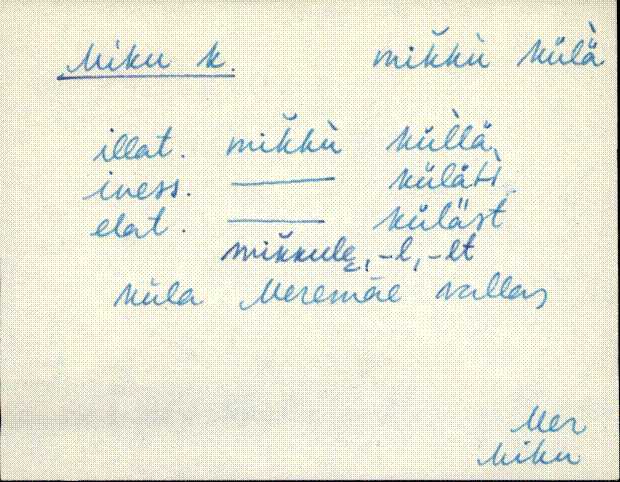 Miku k. mik̆kù külä̀
illat. mik̆kù kül̀lä
iness. —— külätì
elat. —— küläst
mik̆kulę, -l, -lt
küla Meremäe vallas
Mer
Miku